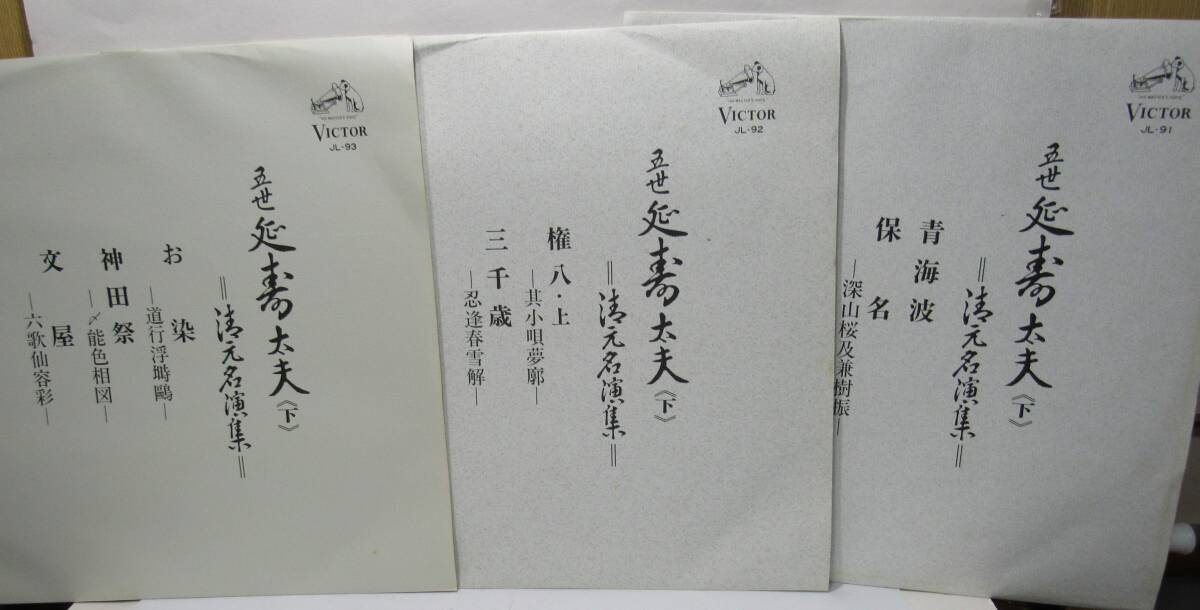 "HIS MASTER'S VOICE"
VICTOR
JL-93
五世 延寿太夫〈下〉
=清元名演集=
お染
—道行浮塒鷗—
神田祭
—〆能色相図—
文屋
—六歌仙容彩—
"HIS MASTER'S VOICE"
VICTOR
JL-92
五世 延寿太夫〈下〉
=清元名演集=
権八・上
—其小唄夢廓—
三千歳
—忍逢春雪解—
"HIS MASTER'S VOICE"
VICTOR
JL-91
五世 延寿太夫〈下〉
=清元名演集=
青海波
保名
—深山桜及兼樹振—